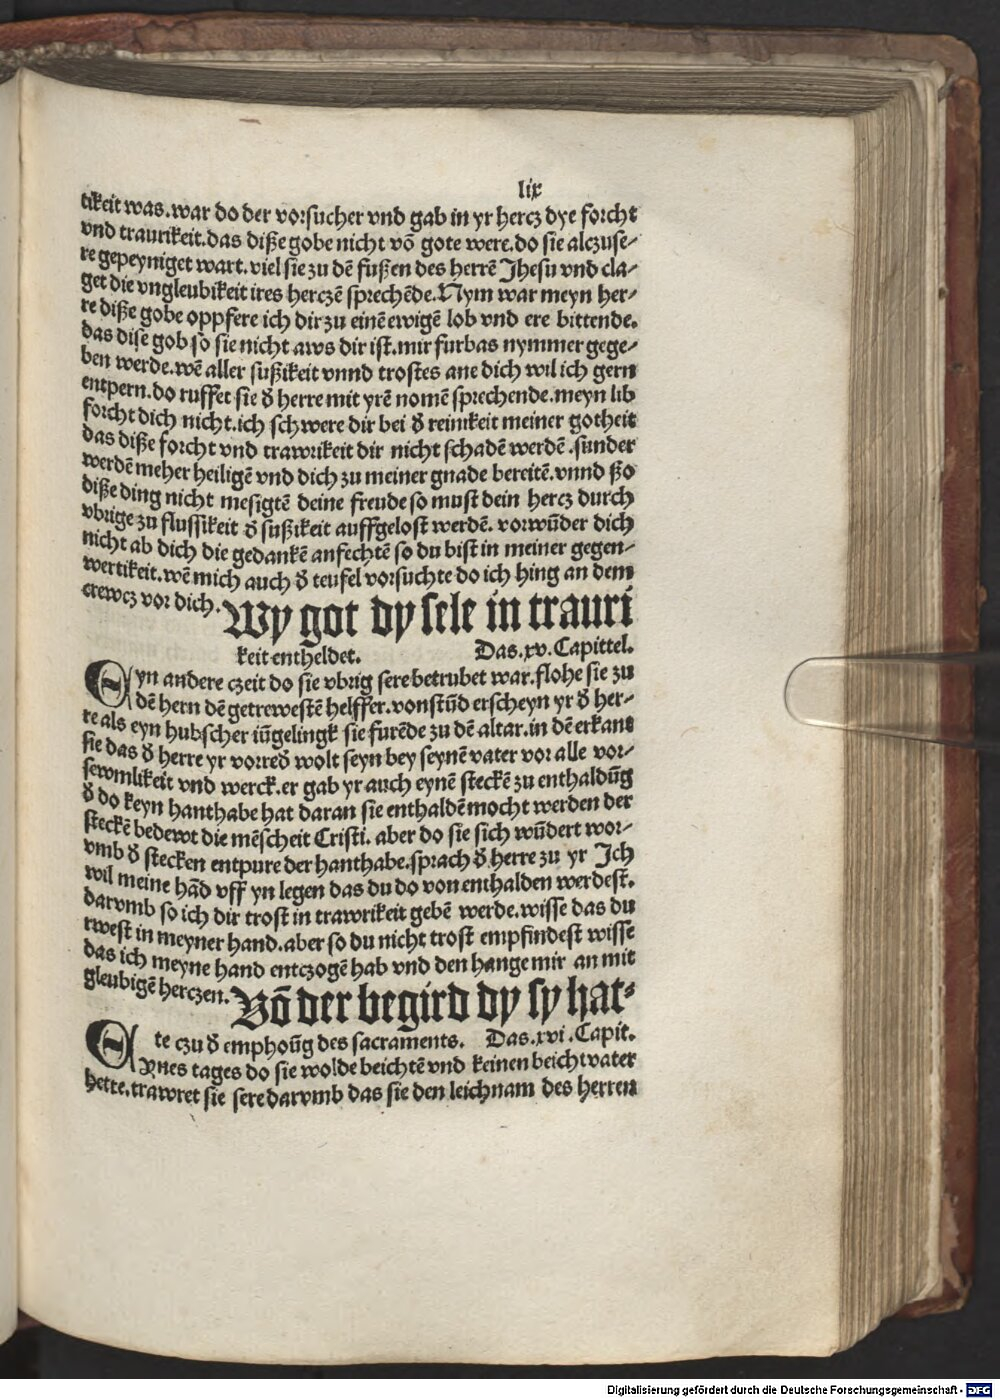 lix
tikeit was.war do der vorsucher vnd gab in yr hercz dye forcht
vnd traurikeit.das diße gobe nicht võ gote were.do sie alczuse-
re gepeyniget wart.viel sie zu dē fußen des herrē Jhesu vnd cla-
get die vngleubikeit ires herczē sprechēde.Nym war meyn her-
re diße gobe oppfere ich dir zu einē ewigē lob vnd ere bittende.
das dise gob so sie nicht aws dir ist.mir furbas nymmer gege-
ben werde.wē aller sußikeit vnnd trostes ane dich wil ich gern
entpern.do ruffet sie d̕ herre mit yrē nomē sprechende.meyn lib
forcht dich nicht.ich schwere dir bei d̕ reinikeit meiner gotheit
das diße forcht vnd trawrikeit dir nicht schadē werdē.sunder
werdē meher heiligē vnd dich zu meiner gnade bereitē.vnnd ßo
diße ding nicht mesigtē deine freude so must dein hercz durch
vbrige zu flussikeit d̕ sußikeit auffgelost werdē. vorwūder dich
nicht ab dich die gedankē anfechtē so du bist in meiner gegen-
wertikeit.wē mich auch d̕ teufel vorsuchte do ich hing an dem
crewcz vor dich. Wy got dy sele in trauri
keit entheldet. Das.xv.Capittel.
Eyn andere czeit do sie vbrig sere betrubet war.flohe sie zu
dē hern dē getrewestē helffer.vonstūd erscheyn yr d̕ her-
re als eyn hubscher iūgelingk sie furēde zu dē altar.in dē erkant
sie das d̕ herre yr vorred̕ wolt seyn bey seynē vater vor alle vor-
sewmlikeit vnd werck.er gab yr auch eynē steckē zu enthaldūg
d̕ do keyn hanthabe hat daran sie enthaldē mocht werden der
steckē bedewt die mēscheit Cristi. aber do sie sich wūdert wor-
vmb d̕ stecken entpure der hanthabe.sprach d̕ herre zu yr Ich
wil meine hād vff yn legen das du do von enthalden werdest.
darvmb so ich dir trost in trawrikeit gebē werde.wisse das du
rwest in meyner hand.aber so du nicht trost empfindest wisse
das ich meyne hand entczogē hab vnd den hange mir an mit
gleubigē herczen. Võ der begird dy sy hat-
te czu d̕ emphoūg des sacraments. Das.xvi.Capit.
Eynes tages do sie wolde beichtē vnd keinen beichtvater
hette.trawret sie sere darvmb das sie den leichnam des herren
Digitalisierung gefördert durch die Deutsche Forschungsgemeinschaft - DFG